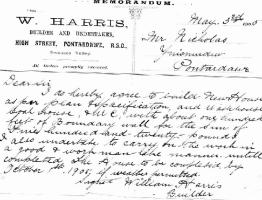 MEMORANDUM.
W. HARRIS,
BUILDER AND UNDERTAKER,
HIGH STREET, PONTARDAWE, R.S.O.,
Swansea Valley.
All Orders promptly executed.
May 3rd 1905
Mr Nicholas
Ynismudw
Pontardawe
Dear Sir
I do hereby agree to build New House
as per plan & specification, and Washhouse
Coal house, & W.C. with about one hundred
feet of Boundary wall for the sum of
Three hundred and twenty pounds
I also undertake to carry on the work in
a good & workmanlike manner untill
completed. The House to be completed by
October 1st 1905 if weather permitted.
Signed William Harris
Builder